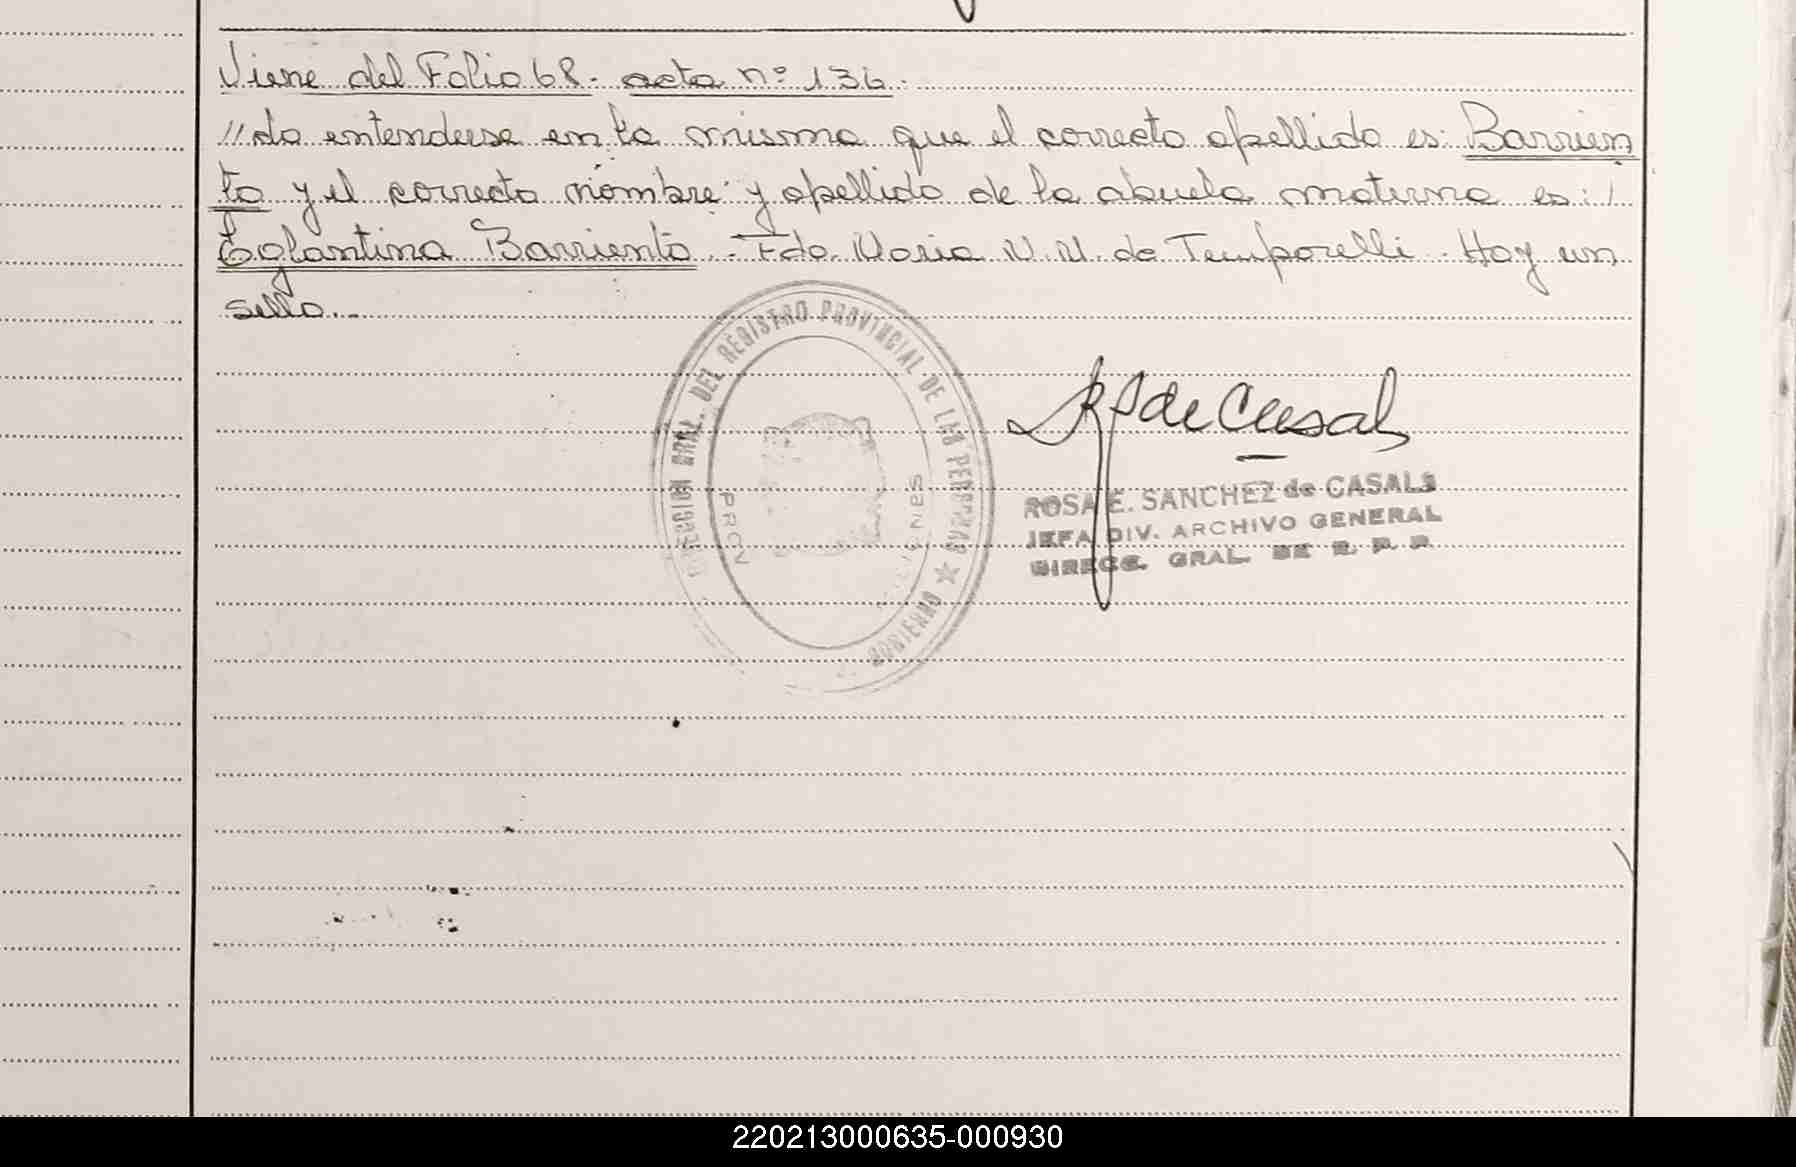 Viene del Folio 68. acta nº 136.
//do entenderse en la misma que el correcto apellido es: Barrien
to y el correcto nombre y apellido de la abuela materna es: /
Eglantina Barriento. - Fdo. Maria N. N. de Temporelli. Hay un
sello. -
DIRECCION GRAL. DEL REGISTRO PROVINCIAL DE LAS PERSONAS ★ GOBIERNO
PROV
MISIONES
R S de Casals
ROSA E. SANCHEZ de CASALS
JEFA DIV. ARCHIVO GENERAL
DIRECC. GRAL. DE R. P. P.
220213000635-000930